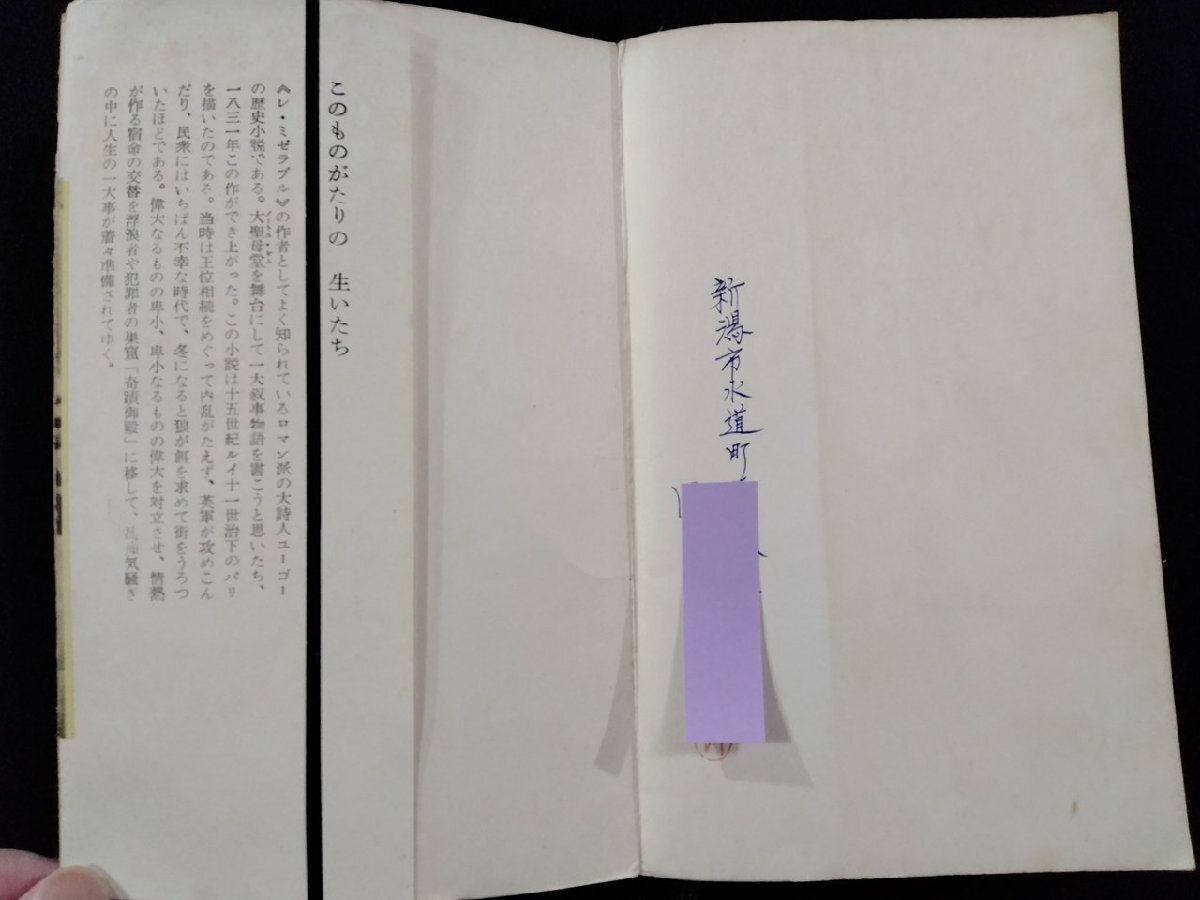 このものがたりの 生いたち
《レ・ミゼラブル》の作者としてよく知られているロマン派の大詩人ユーゴー
の歴史小説である。大聖母堂を舞台にして一大叙事物語を書こうと思いたち、
一八三一年この作ができ上がった。この小説は十五世紀ルイ十一世治下のパリ
を描いたのである。当時は王位相続をめぐって内乱がたえず、英軍が攻めこん
だり、民衆にはいちばん不幸な時代で、冬になると狼が餌を求めて街をうろつ
いたほどである。偉大なるものの卑小、卑小なるものの偉大を対立させ、情熱
が作る宿命の交替を浮浪者や犯罪者の巣窟「奇蹟御殿」に移して、気騒ぎ
の中に人生の一大事が着々準備されてゆく。
新潟市水道町